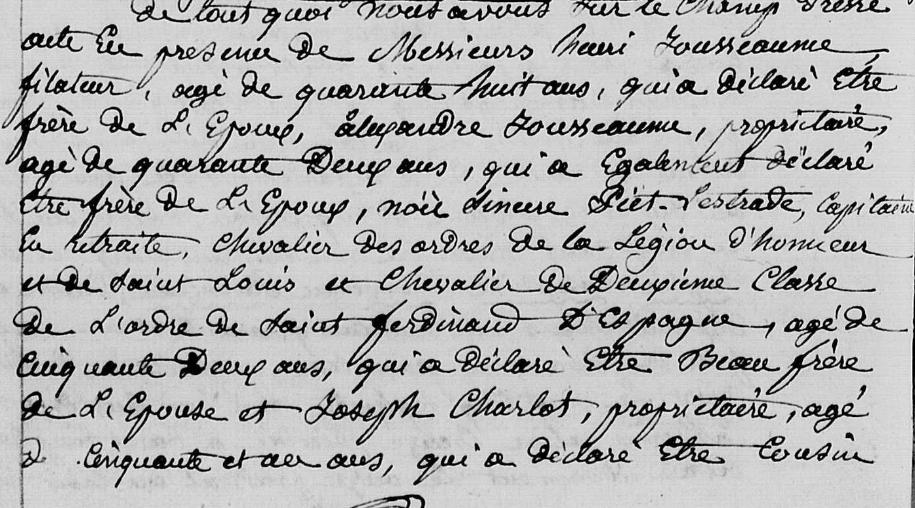 de tout quoi nous avons sur le Champ dressé
acte En presence de Messieurs henri Jousseaume
filateur, agé de quarante huit ans, qui a déclaré Etre
frère de L'Epoux, alexandre Jousseaume, propriétaire,
agé de quarante Deux ans, qui a Egalement déclaré
Etre frère de L'Epoux, noël Sincere Piet-Lestrade, Capitaine
En retraite, Chevalier des ordres de la Légion d'honneur
et de Saint Louis et Chevalier de Deuxième Classe
de L'ordre de Saint ferdinand D'Espagne, agé de
Cinquante Deux ans, qui a déclaré Etre Beau frère
de L'Epouse et Joseph Charlot, propriétaire, agé
d Cinquante et un ans, qui a déclaré Etre Cousin